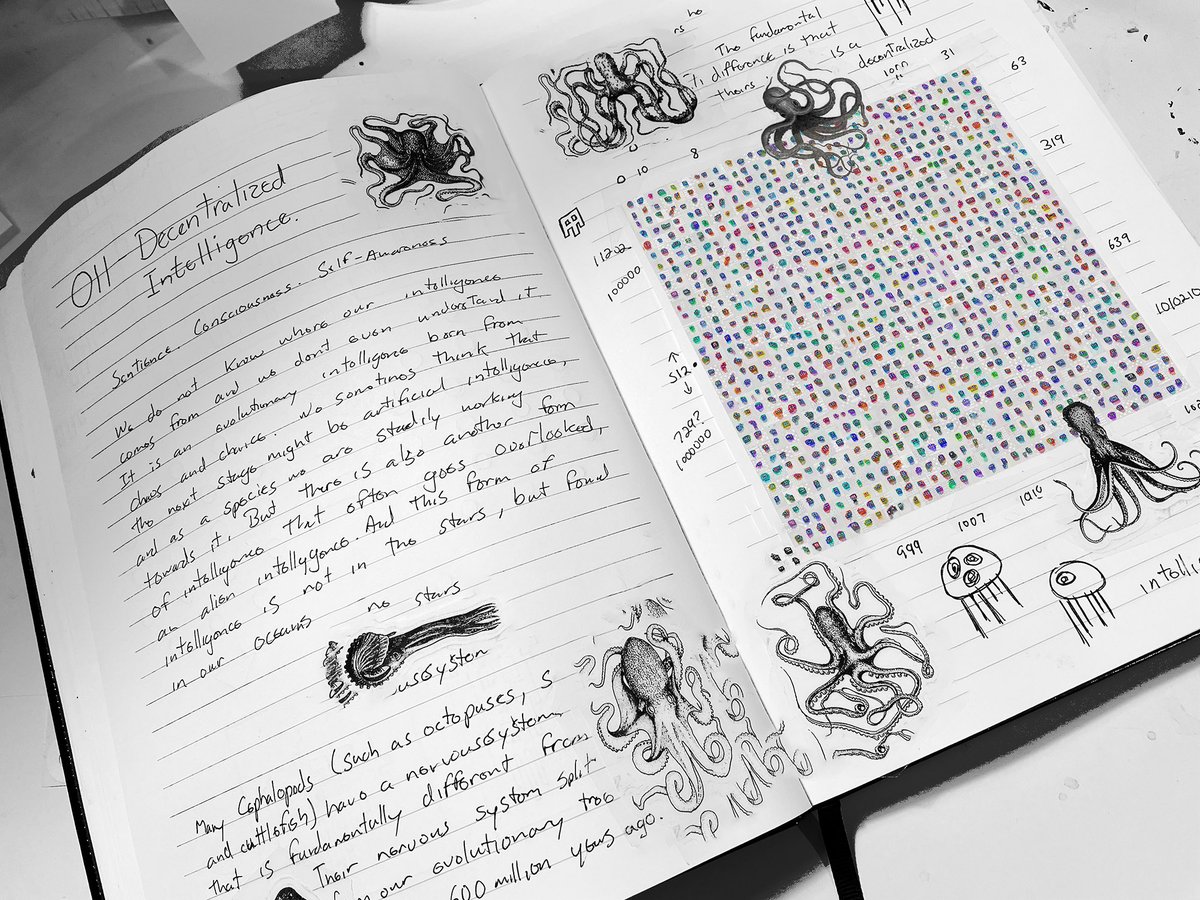 On Decentralized
Intelligence.
Sentience. Consciousness. Self-Awareness
We do not know where our intelligence
comes from and we don't even understand it
It is an evolutionary intelligence born from
chaos and chance. We sometimes think that
the next stage might be artificial intelligence,
and as a species we are steadily working
towards it. But there is also another form
of intelligence that often goes overlooked,
an alien intelligence. And this form of
intelligence is not in the stars, but found
in our oceans no stars
Many Cephalopods (such as octopuses, s
and cuttlefish) have a nervous system
that is fundamentally different from
Their nervous system split
our evolutionary tree
600 million years ago.
The fundamental
difference is that
theirs is a
decentralized
31
63
0 10 8
319
11202
100000
639
512
729?
1000000
999
1007
intelli